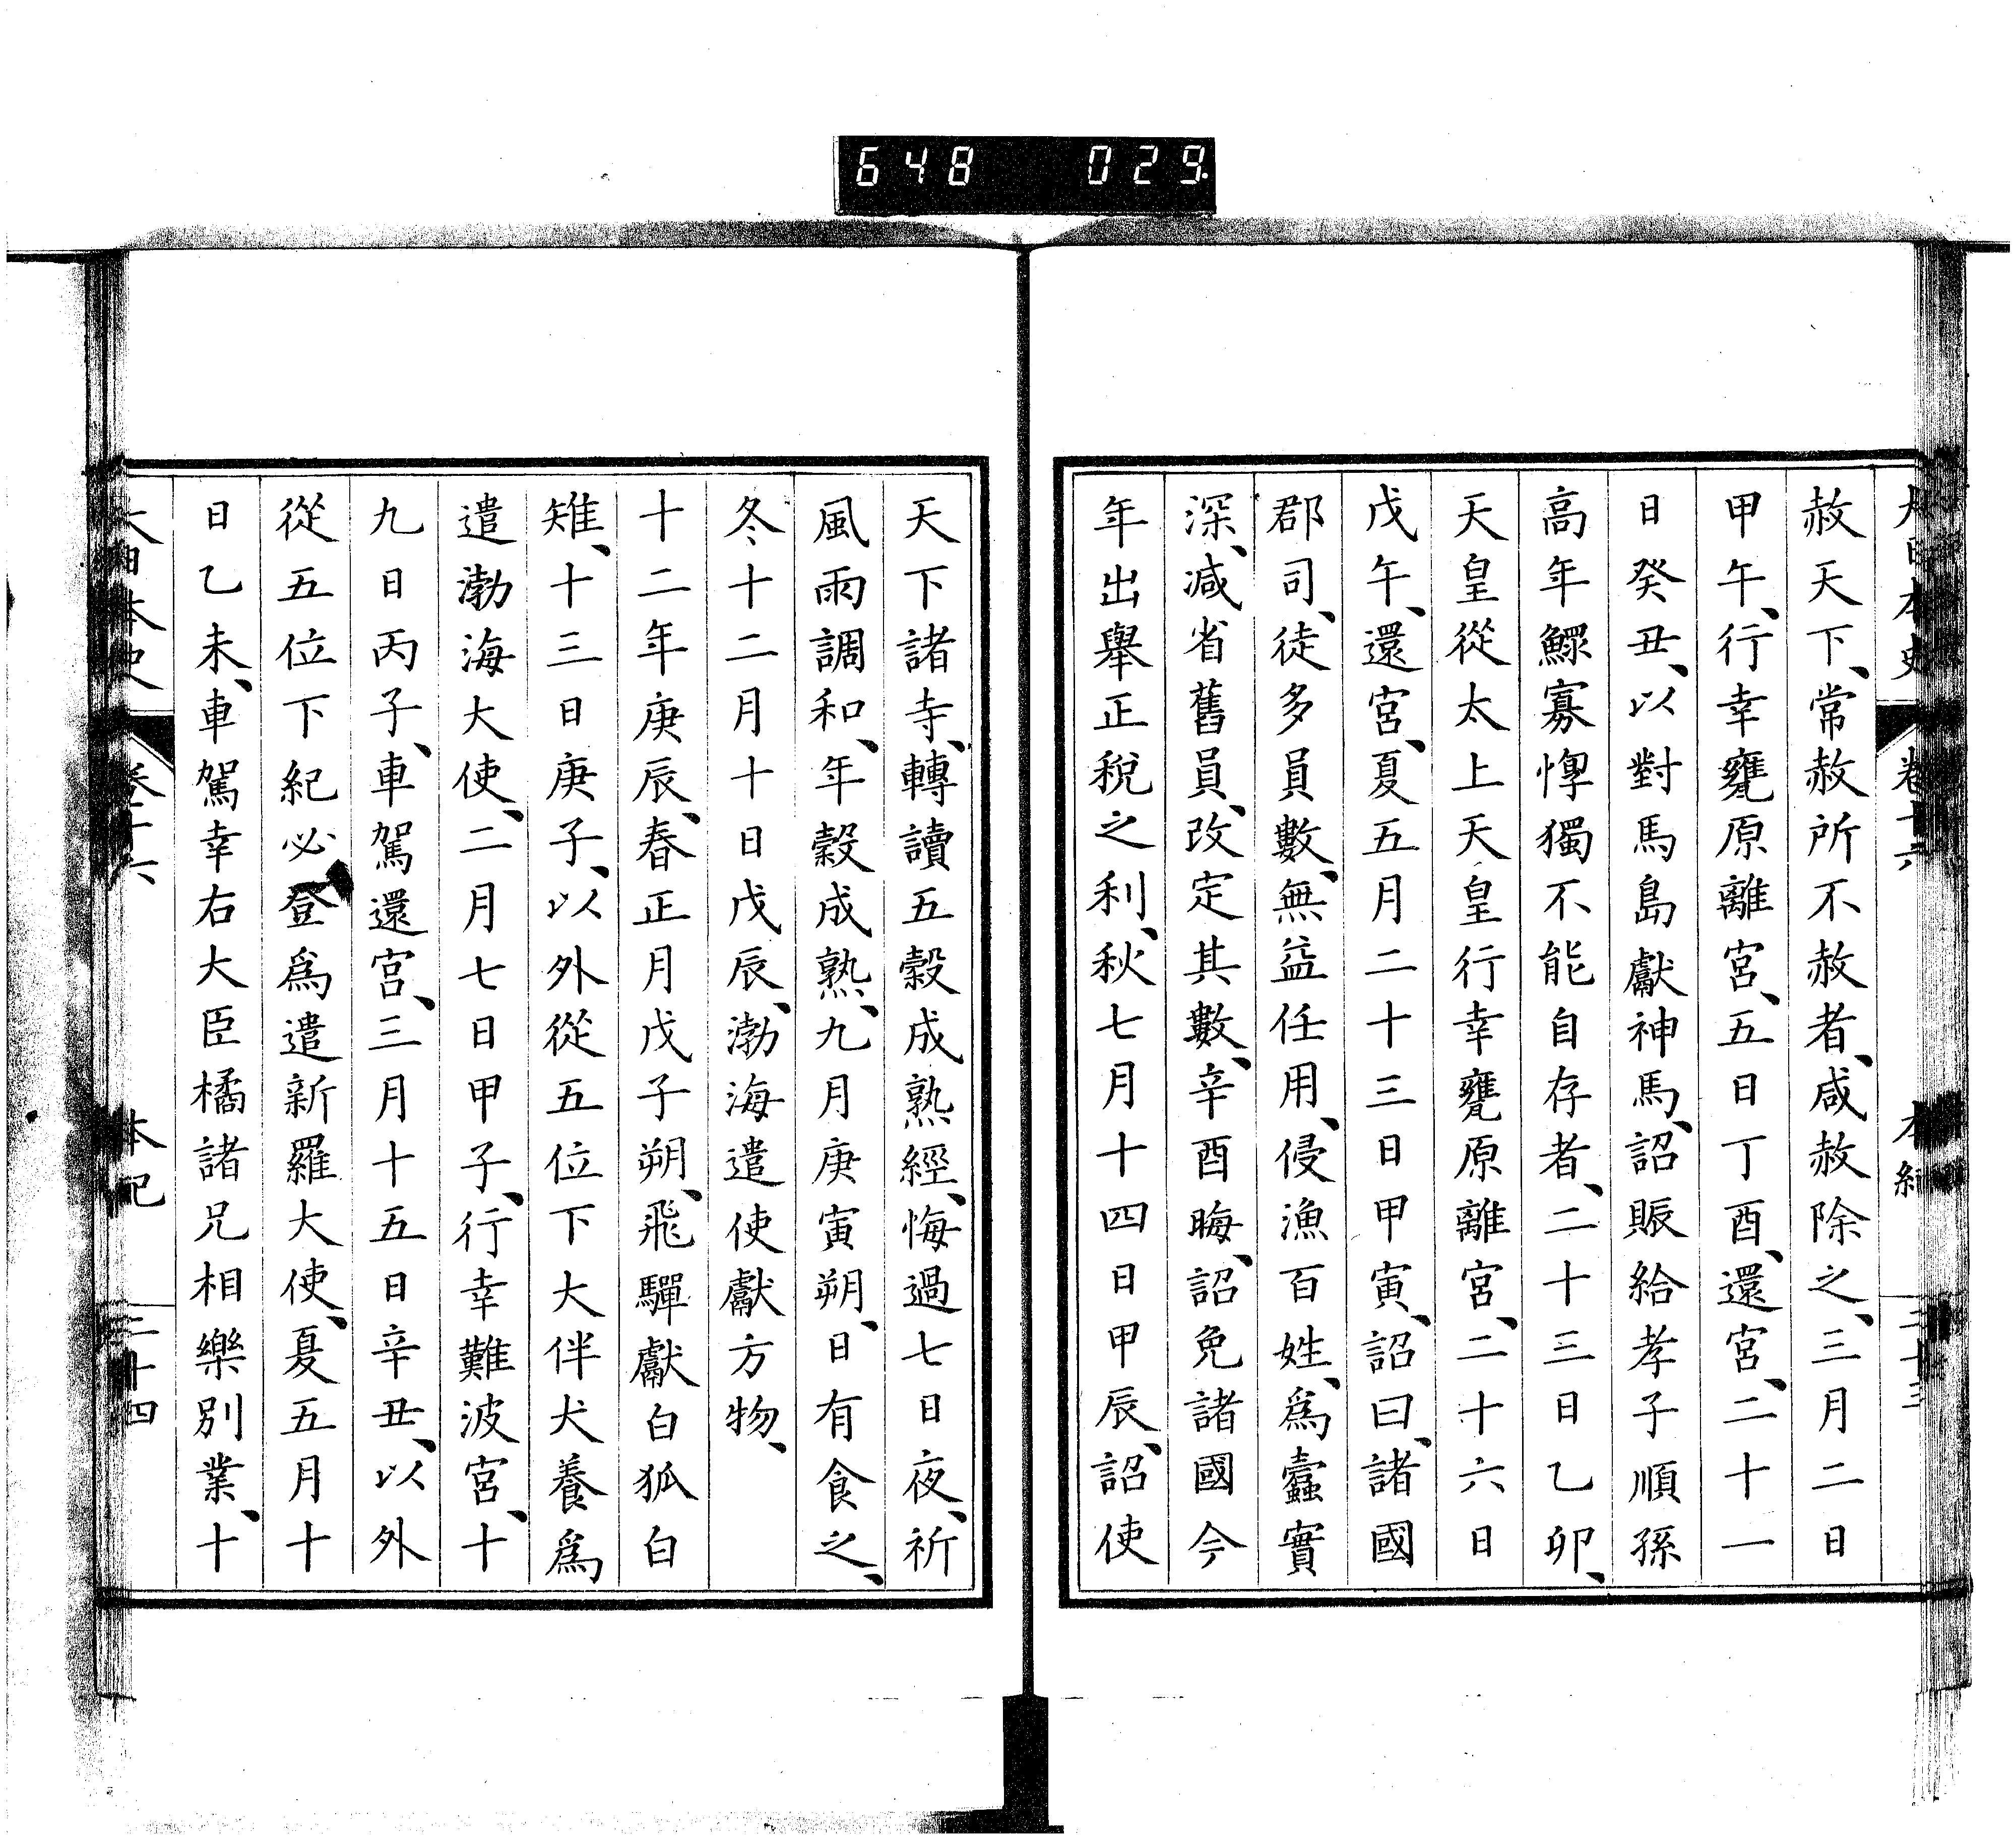 648 029
大日本史 卷十六 本紀 三十三
赦天下、常赦所不赦者、咸赦除之、三月二日
甲午、行幸甕原離宮、五日丁酉、還宮、二十一
日癸丑、以對馬島獻神馬、詔賑給孝子順孫
高年鰥寡惸獨不能自存者、二十三日乙卯、
天皇從太上天皇行幸甕原離宮、二十六日
戊午、還宮、夏五月二十三日甲寅、詔曰、諸國
郡司、徒多員數、無益任用、侵漁百姓、爲蠹實
深、減省舊員、改定其數、辛酉晦、詔免諸國今
年出擧正稅之利、秋七月十四日甲辰、詔使
天下諸寺、轉讀五穀成熟經、悔過七日夜、祈
風雨調和、年穀成熟、九月庚寅朔、日有食之、
冬十二月十日戊辰、渤海遣使獻方物、
十二年庚辰、春正月戊子朔、飛驒獻白狐白
雉、十三日庚子、以外從五位下大伴犬養爲
遣渤海大使、二月七日甲子、行幸難波宮、十
九日丙子、車駕還宮、三月十五日辛丑、以外
從五位下紀必登爲遣新羅大使、夏五月十
日乙未、車駕幸右大臣橘諸兄相樂別業、十
大日本史 卷十六 本紀 三十四